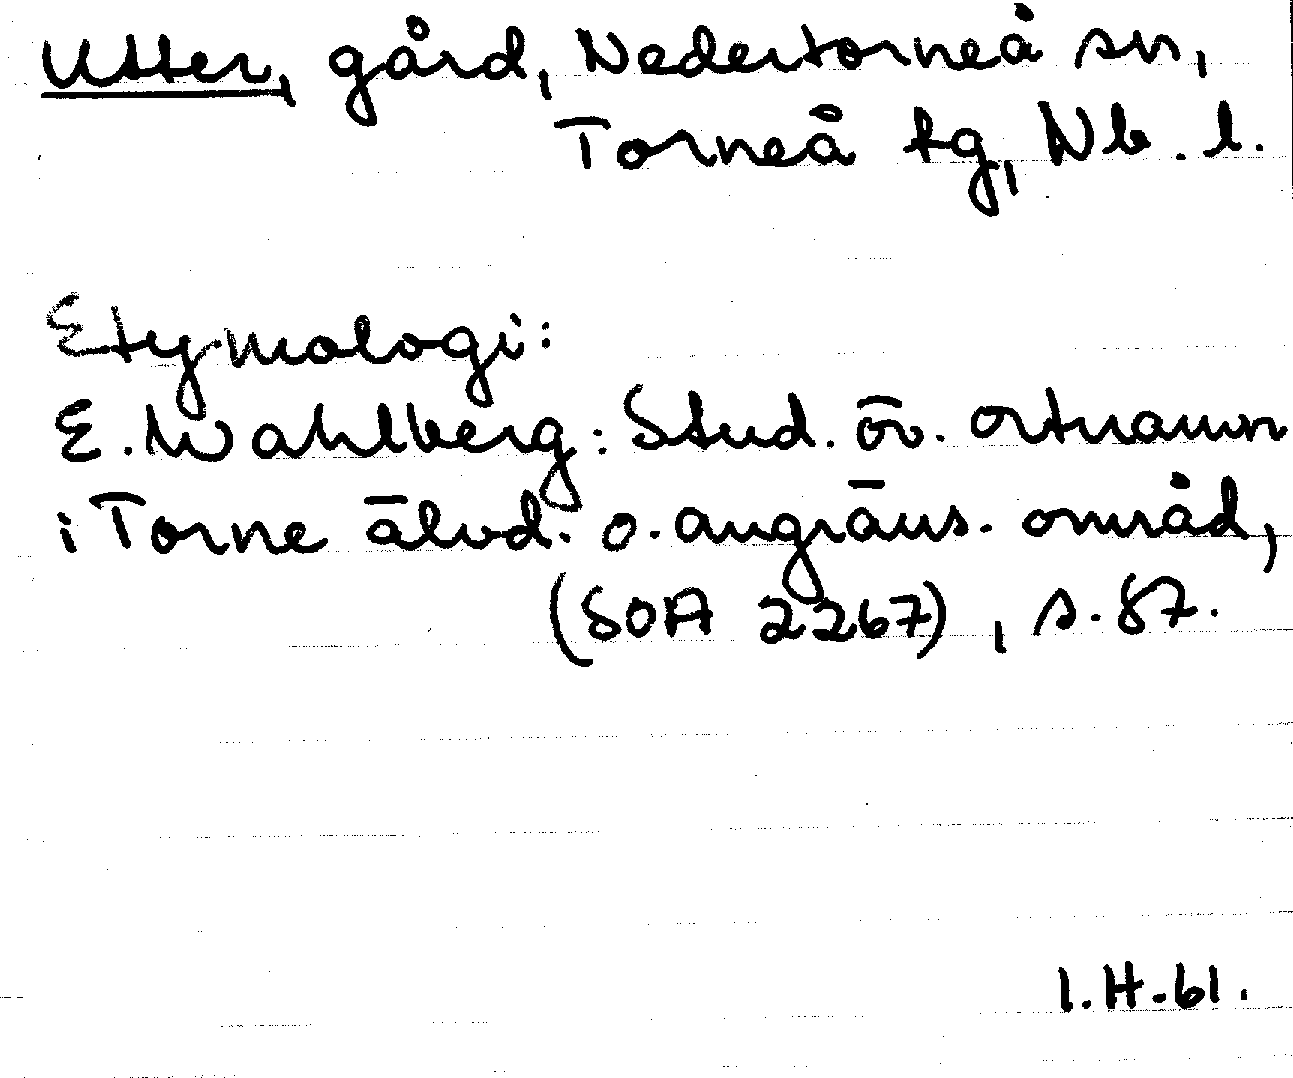 Utter, gård, Nedertorneå sn,
Torneå tg, Nb. l.
Etymologi:
E. Wahlberg: Stud. öv. ortnamn
i Torne älvd. o. angräns. områd,
(SOA 2267), s. 87.
I.H.61.